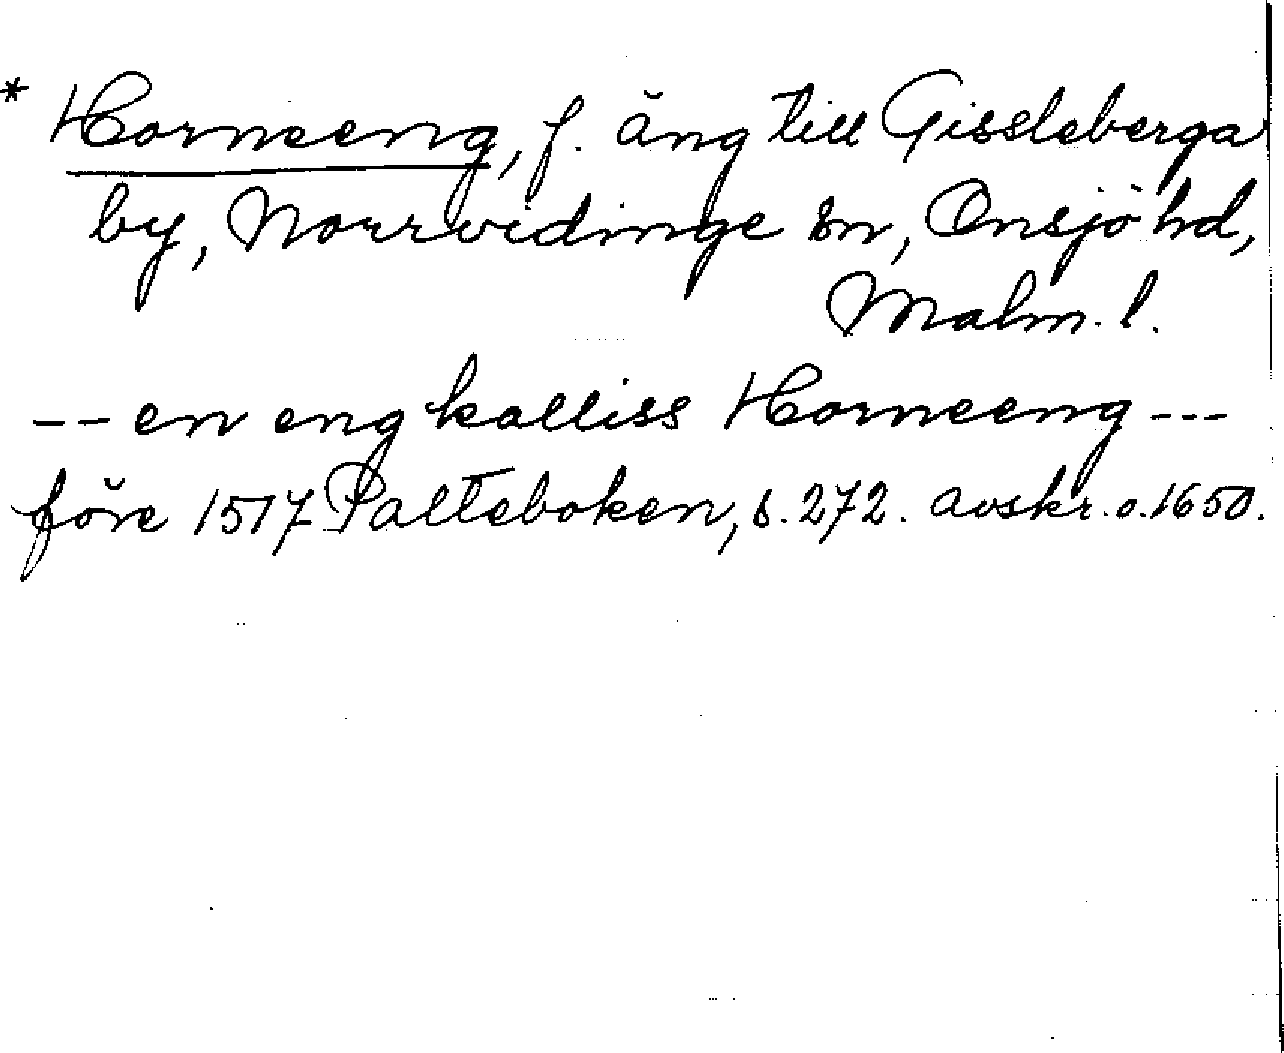 * Horneeng, f. äng till Gissleberga
by, Norrvidinge sn, Onsjö hd,
Malm. l.
-- en eng kalliss Horneeng ---
före 1517 Palteboken, s. 272. avskr. o. 1650.